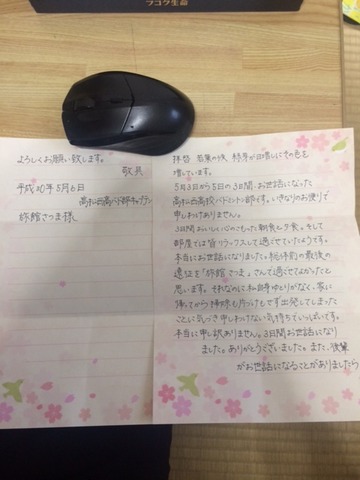 フコク生命
拝啓 若葉の候 緑芽が日増しにその色を
増しています。
5月3日から5日の3日間、お世話になった
高松西高バドミントン部です。いきなりのお便りで
申しわけありません。
3日間おいしい心のこもった朝食と夕食。そして
部屋では皆リラックスして過せていたようです。
本当にお世話になりました。総体前の最後の
遠征を「旅館さつま」さんで過せてよかったと
思います。それなのに私自身ゆとりがなく、家に
帰ってから掃除も片づけもせず出発してしまった
ことに気づき申しわけない気持ちでいっぱいです。
本当に申し訳ありません。3日間お世話になり
ました。ありがとうございました。また、後輩
がお世話になることがありましたら
よろしくお願い致します。
敬具
平成20年5月6日
高松西高バド部キャプテン
旅館さつま様